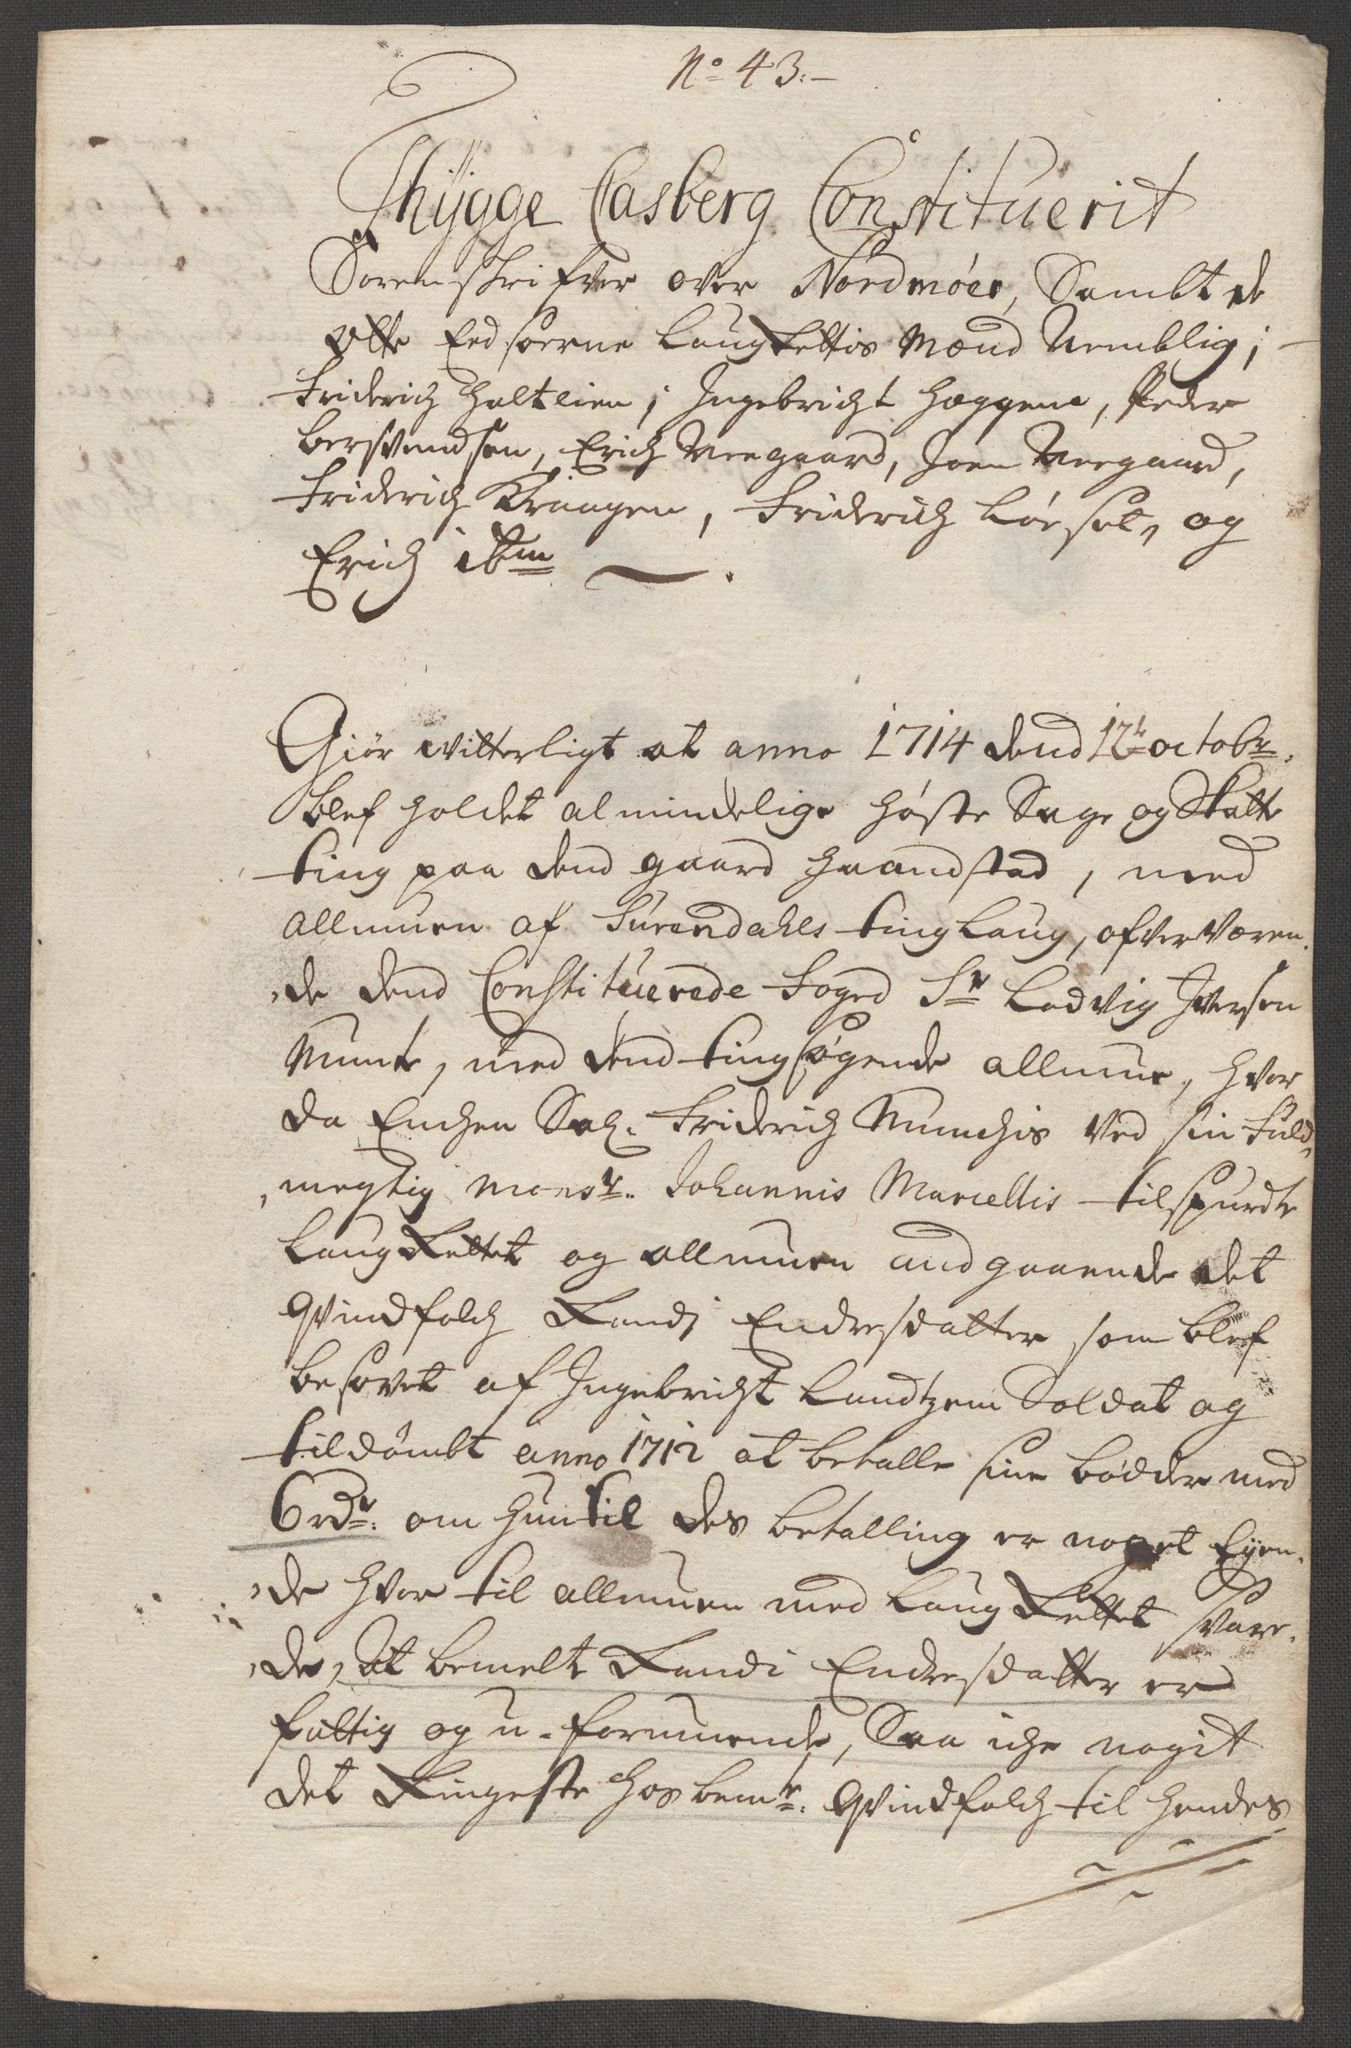 No 43.-
Thÿgge Casberg Constituerit
Sorenskrifver over Nordmöer, Sambt de
Otte Eedsorne LaugRettis Mænd Nemblig;
Friderich Haltlien, Ingebricht Hæggem, Peder
Bersvendsen, Erich Neegaard, Joen Neegaard,
Friderich Kraagen, Friderich Löesel, og
Erich ibm
Giör witterligt at anno 1714 dend 12t octobr.
blef holdet almindelige Höste Sage og Skatte
ting paa dend gaard Haandstad, med
allmuen af Surendahls tinglaug, ofverværen,
,de dend Constituerede Foged Sr Ludvig Iversen
Munte, med dend tingsøgende allmue, hvor
da Enchen Sal. Friderich Munchis ved sin Fuld,
,megtig monsr. Johannis Marcellis tilspurdte
LaugRettet og allmuen andgaaende det
Qvindfolch Randj Endresdatter som blef
besovet af Ingebricht Landtzem Soldat og
tildömbt anno 1712 at betalle sine bödder med
6 rdr. om hun til des betalling er noget Eyen,
,de hvor til allmuen med LaugRettet svare,
,de, At bemelte Randi Endresdatter er
fattig og u-formuende, Saa iche nogit
det Ringeste hos bemte. Qvindfolch til hendes